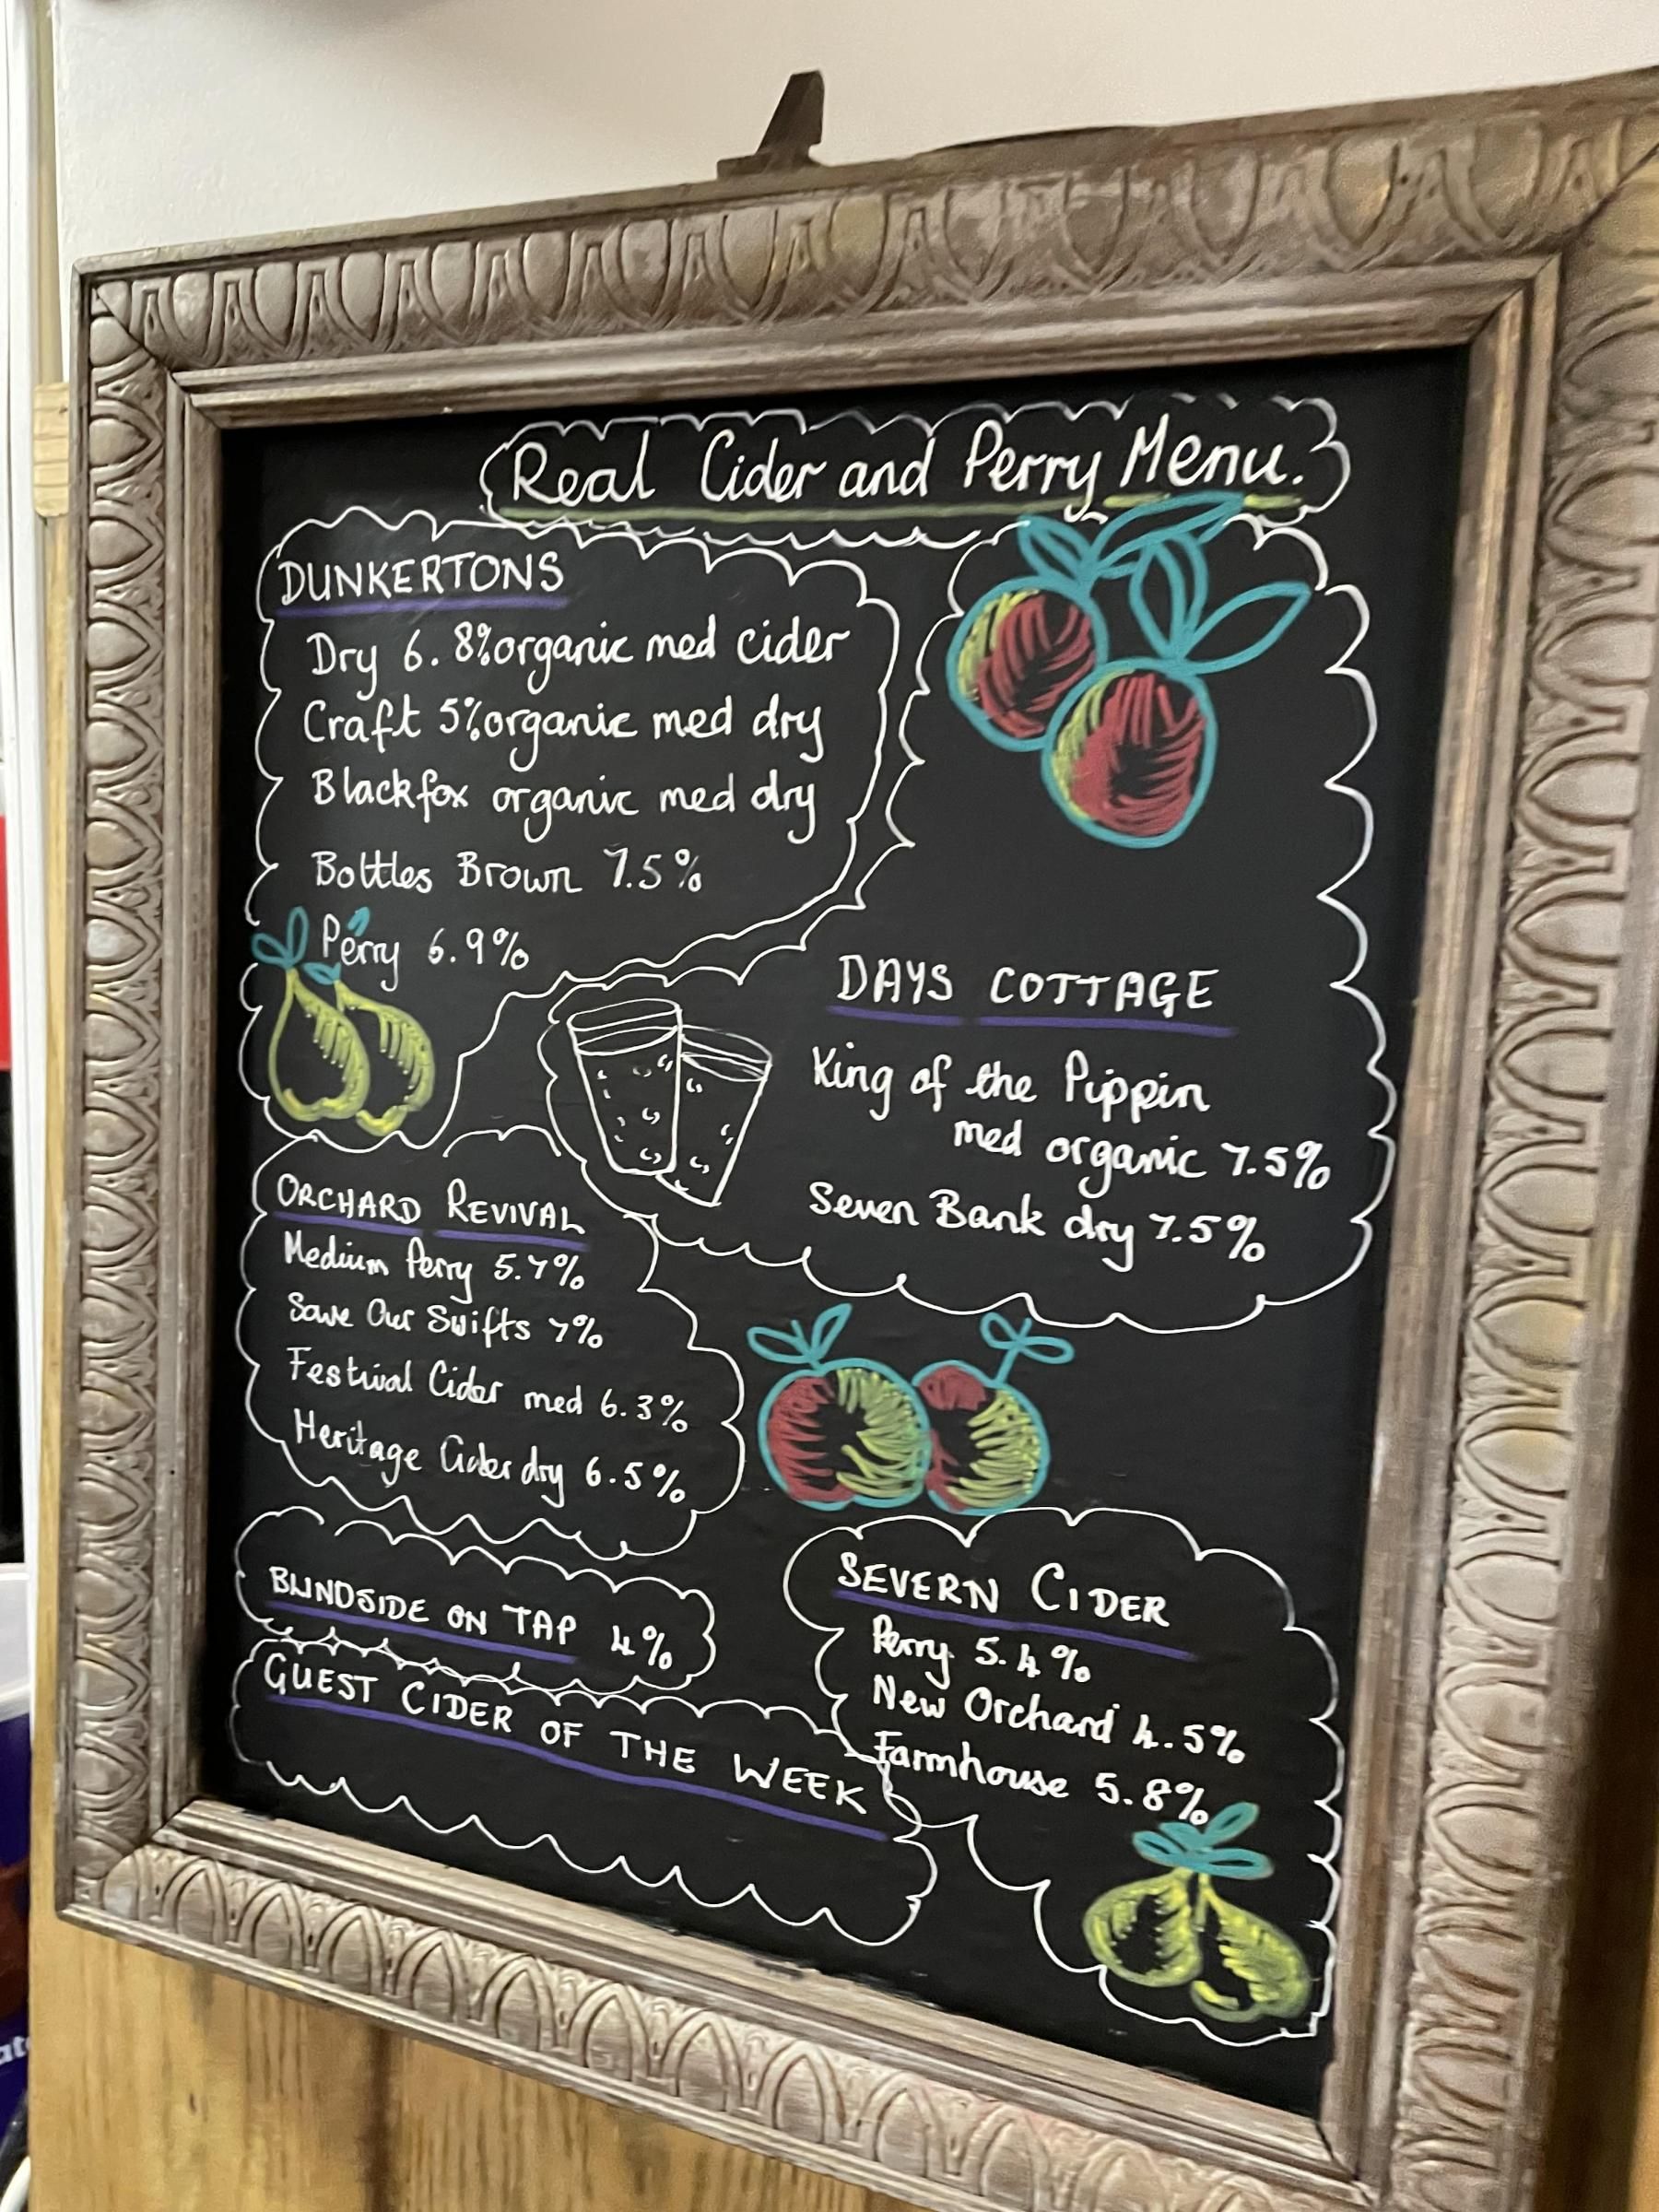 Real Cider and Perry Menu.
DUNKERTONS
Dry 6.8% organic med cider
Craft 5% organic med dry
Blackfox organic med dry
Bottles Brown 7.5%
Perry 6.9%
DAYS COTTAGE
King of the Pippin
med organic 7.5%
Seven Bank dry 7.5%
ORCHARD REVIVAL
Medium Perry 5.7%
Save Our Swifts 7%
Festival Cider med 6.3%
Heritage Cider dry 6.5%
BLINDSIDE ON TAP 4%
GUEST CIDER OF THE WEEK
SEVERN CIDER
Perry 5.4%
New Orchard 4.5%
Farmhouse 5.8%